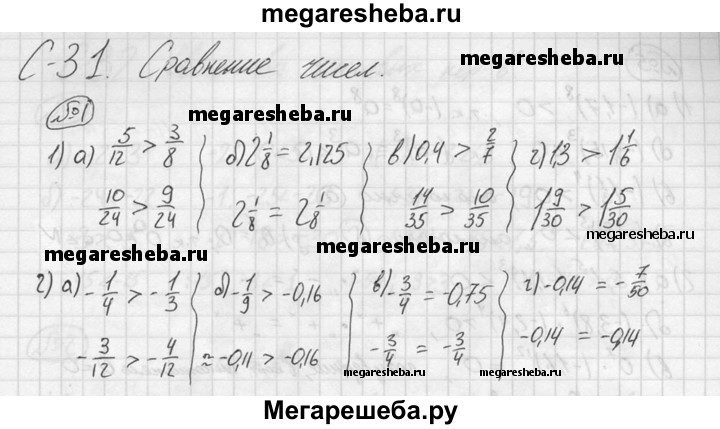 megaresheba.ru
С-31. Сравнение чисел.
megaresheba.ru
№1
megaresheba.ru
1) а) 5/12 > 3/8 б) 2 1/8 = 2,125 в) 0,4 > 2/7 г) 1,3 > 1 1/6
10/24 > 9/24 2 1/8 = 2 1/8 14/35 > 10/35 1 9/30 > 1 5/30
megaresheba.ru megaresheba.ru megaresheba.ru
2) а) -1/4 > -1/3 б) -1/9 > -0,16 в) -3/4 = -0,75 г) -0,14 = -7/50
-3/12 > -4/12 ≈ -0,11 > -0,16 -3/4 = -3/4 -0,14 = -0,14
megaresheba.ru megaresheba.ru
Мегарешеба.ру